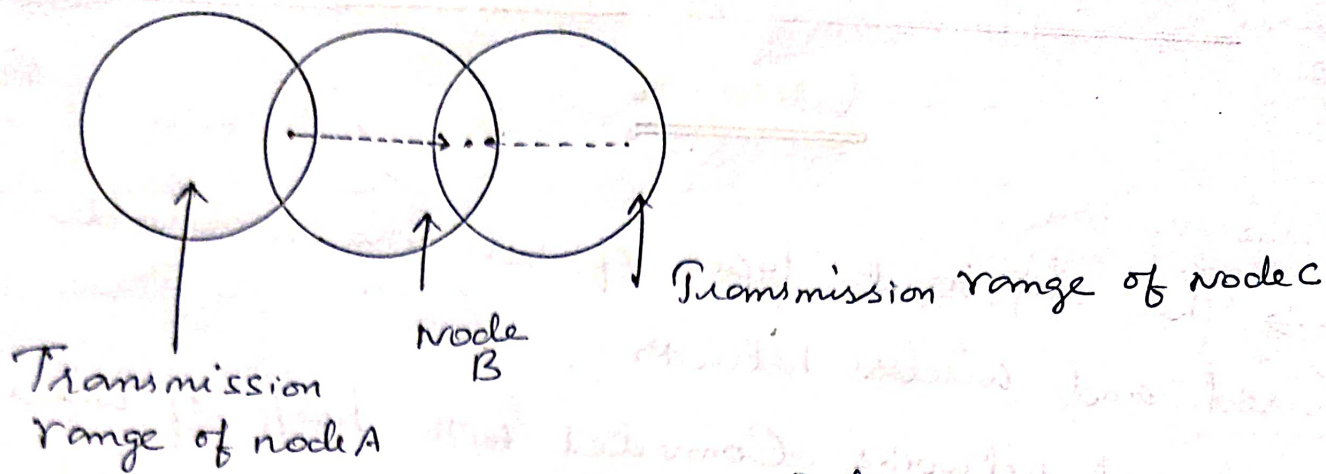 Transmission range of Node C
Node
B
Transmission
range of node A